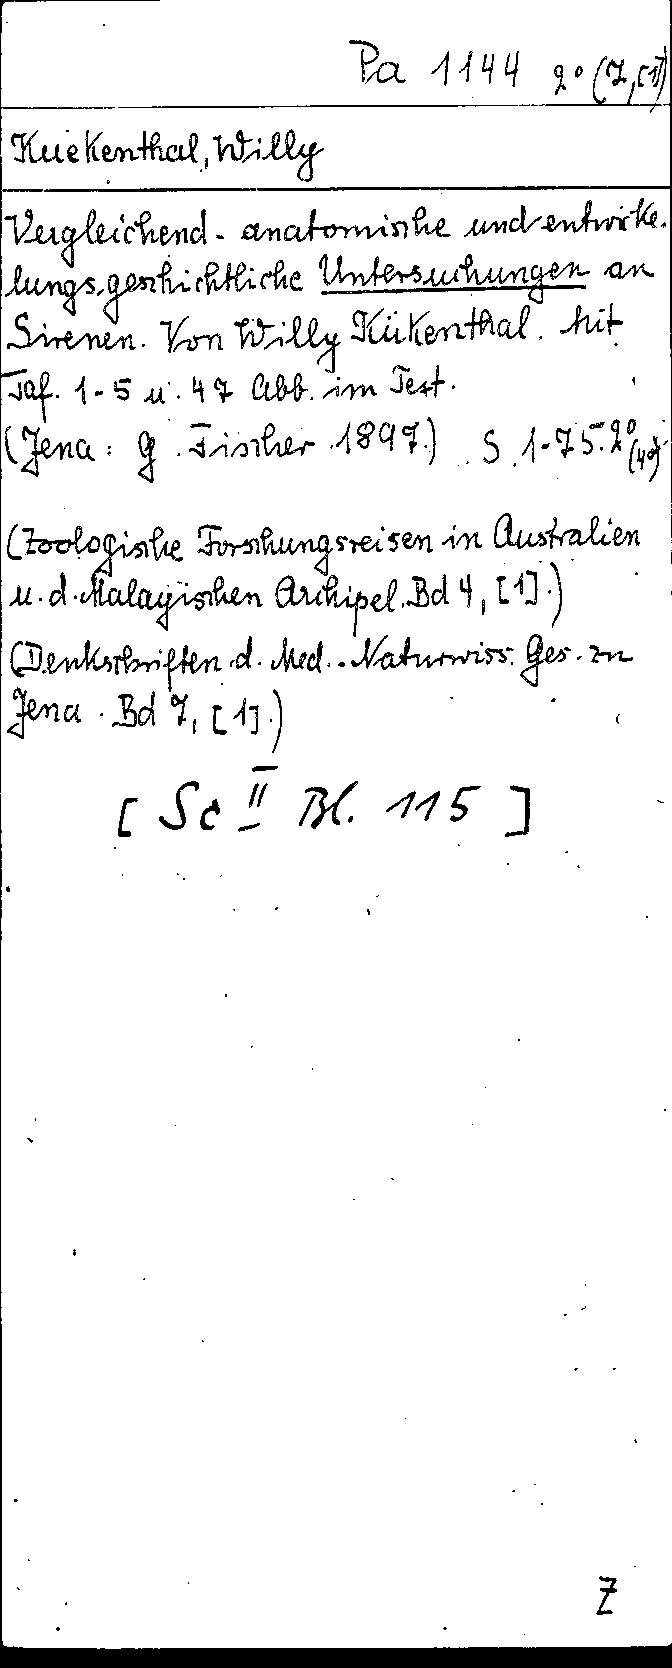 Pa 1144 2° (7,[1])
Kuekenthal, Willy
Vergleichend-anatomische und entwicke-
lungsgeschichtliche Untersuchungen an
Sirenen. Von Willy Kükenthal. Mit
Taf. 1-5 u. 47 Abb. im Text.
(Jena: G. Fischer 1897.) S. 1-75. 2° (4°)
(Zoologische Forschungsreisen in Australien
u. d. Malayischen Archipel. Bd 4, [1].)
(Denkschriften d. Med.-Naturwiss. Ges. zu
Jena. Bd 7, [1].)
[Sc II Bl. 115]
Z